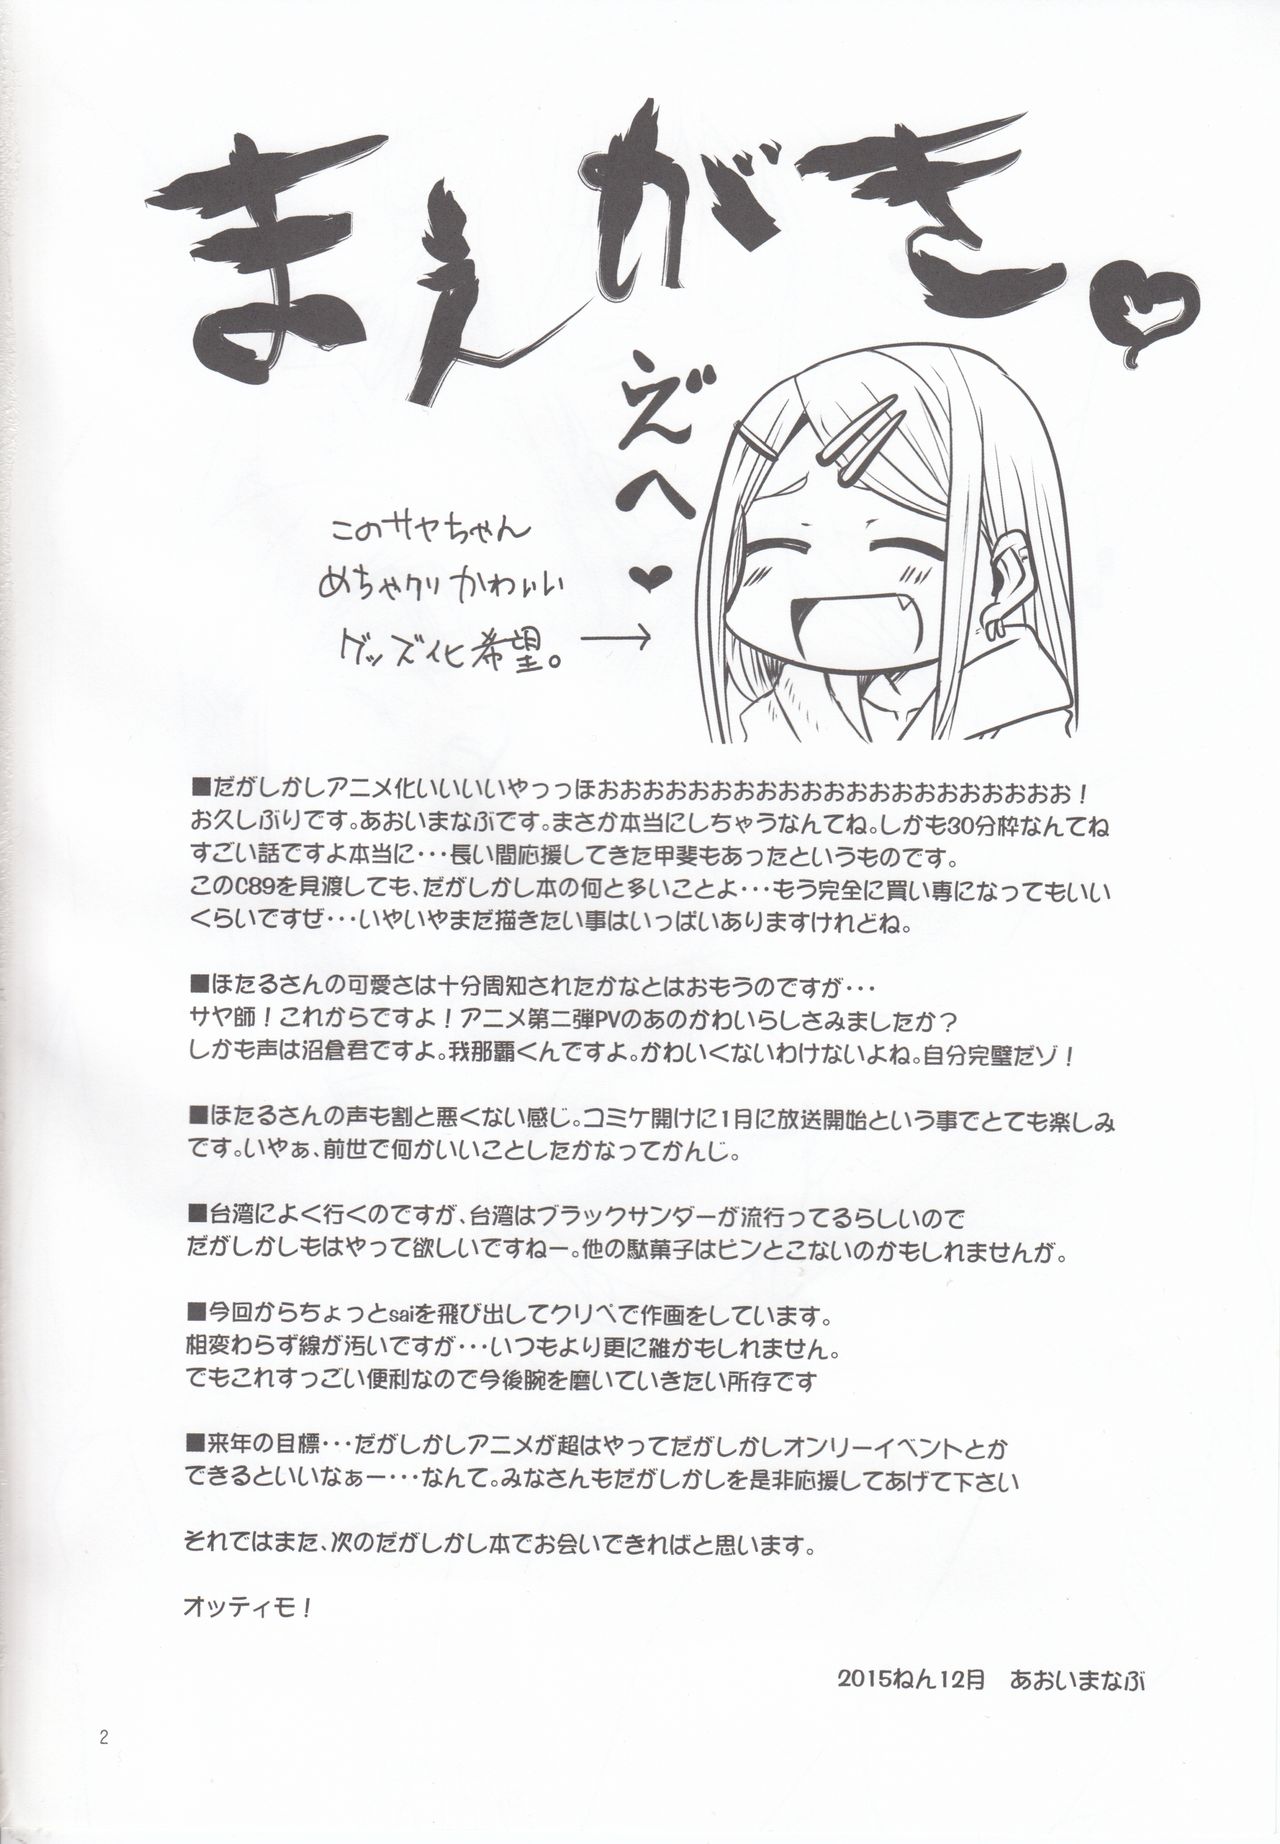 まえがき
えへ
このサヤちゃん
めちゃクソかわいい
グッズ化希望。
■だがしかしアニメ化いいいいやっっほおおおおおおおおおおおおおおおおおおおお！
お久しぶりです。あおいまなぶです。まさか本当にしちゃうなんてね。しかも30分枠なんてね
すごい話ですよ本当に・・・長い間応援してきた甲斐もあったというものです。
このC89を見渡しても、だがしかし本の何と多いことよ・・・もう完全に買い専になってもいい
くらいですぜ・・・いやいやまだ描きたい事はいっぱいありますけれどね。
■ほたるさんの可愛さは十分周知されたかなとはおもうのですが・・・
サヤ師！これからですよ！アニメ第二弾PVのあのかわいらしさみましたか？
しかも声は沼倉君ですよ。我那覇くんですよ。かわいくないわけないよね。自分完璧だゾ！
■ほたるさんの声も割と悪くない感じ。コミケ開けに1月に放送開始という事でとても楽しみ
です。いやぁ、前世で何かいいことしたかなってかんじ。
■台湾によく行くのですが、台湾はブラックサンダーが流行ってるらしいので
だがしかしもはやって欲しいですねー。他の駄菓子はピンとこないのかもしれませんが。
■今回からちょっとsaiを飛び出してクリペで作画をしています。
相変わらず線が汚いですが・・・いつもより更に雑かもしれません。
でもこれすっごい便利なので今後腕を磨いていきたい所存です
■来年の目標・・・だがしかしアニメが超はやってだがしかしオンリーイベントとか
できるといいなぁー・・・なんて。みなさんもだがしかしを是非応援してあげて下さい
それではまた、次のだがしかし本でお会いできればと思います。
オッティモ！
2015ねん12月　あおいまなぶ
2